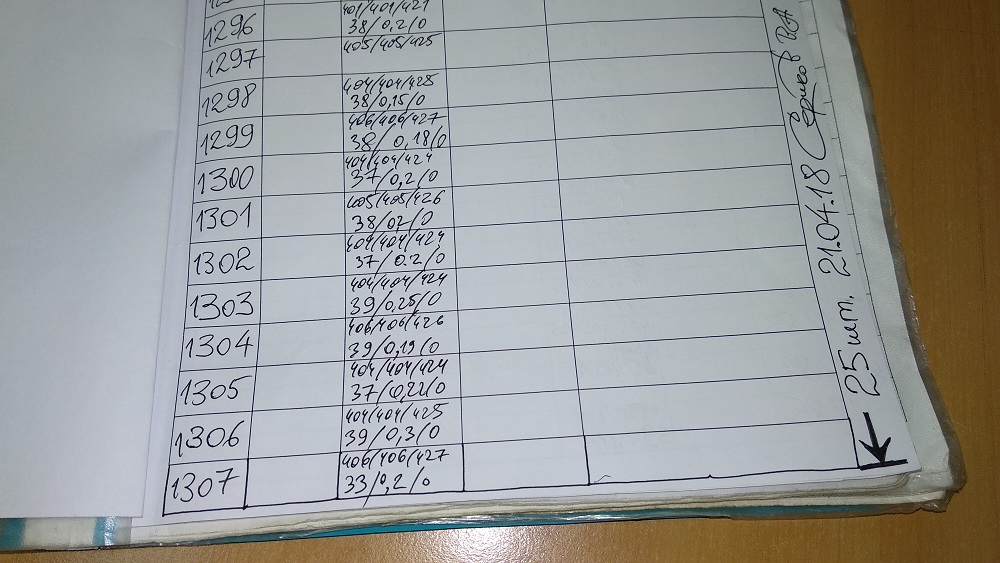 1296
401/401/421
38/0,2/0
1297
405/405/425
1298
404/404/425
38/0,15/0
1299
406/406/427
38/0,18/0
1300
404/404/424
37/0,2/0
1301
405/405/426
38/02/0
1302
404/404/424
37/0.2/0
1303
404/404/424
39/0,25/0
1304
406/406/426
39/0,19/0
1305
404/404/424
37/0,22/0
1306
404/404/425
39/0,3/0
1307
406/406/427
33/0,2/0
25 шт. 21.04.18